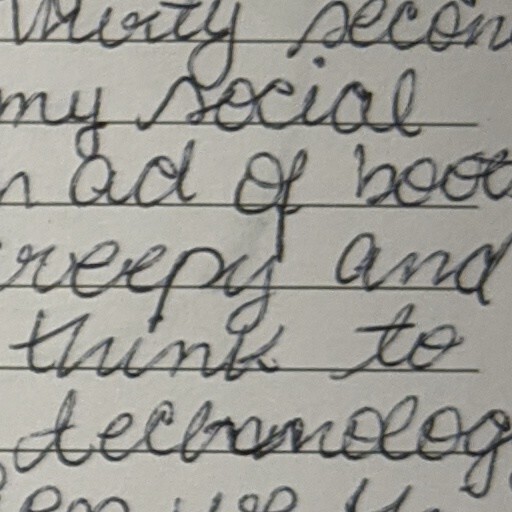 thirty secon
my social
n ad of boot
reepy and
think to
technolog